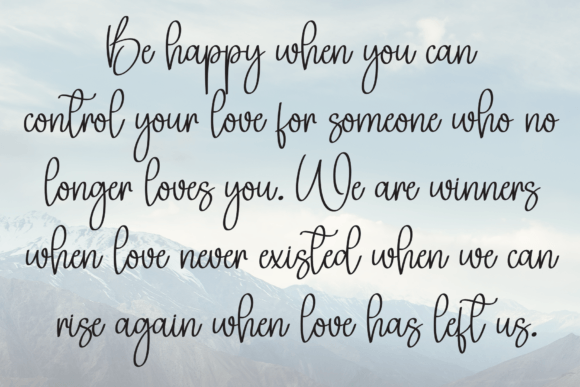 Be happy when you can
control your love for someone who no
longer loves you. We are winners
when love never existed when we can
rise again when love has left us.